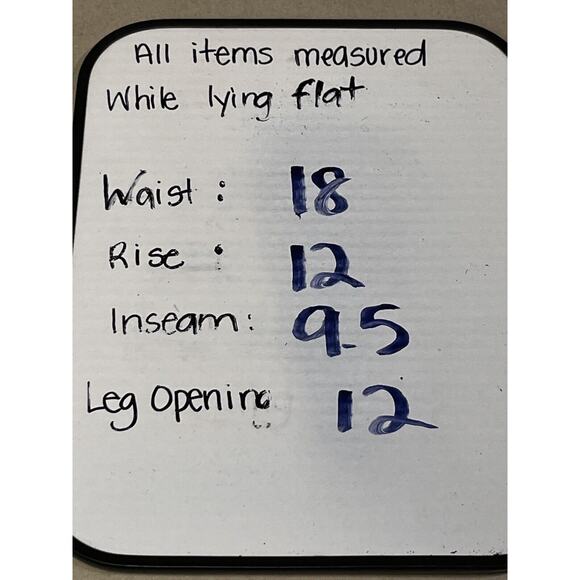 All items measured
While lying flat
Waist : 18
Rise : 12
Inseam : 9.5
Leg Opening 12